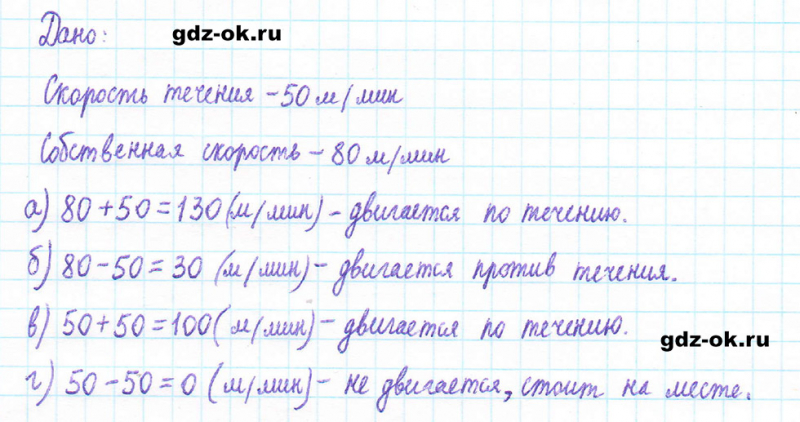 Дано: gdz-ok.ru
Скорость течения - 50 м/мин
Собственная скорость - 80 м/мин
а) 80 + 50 = 130 (м/мин) - двигается по течению.
б) 80 - 50 = 30 (м/мин) - двигается против течения.
в) 50 + 50 = 100 (м/мин) - двигается по течению.
gdz-ok.ru
г) 50 - 50 = 0 (м/мин) - не двигается, стоит на месте.